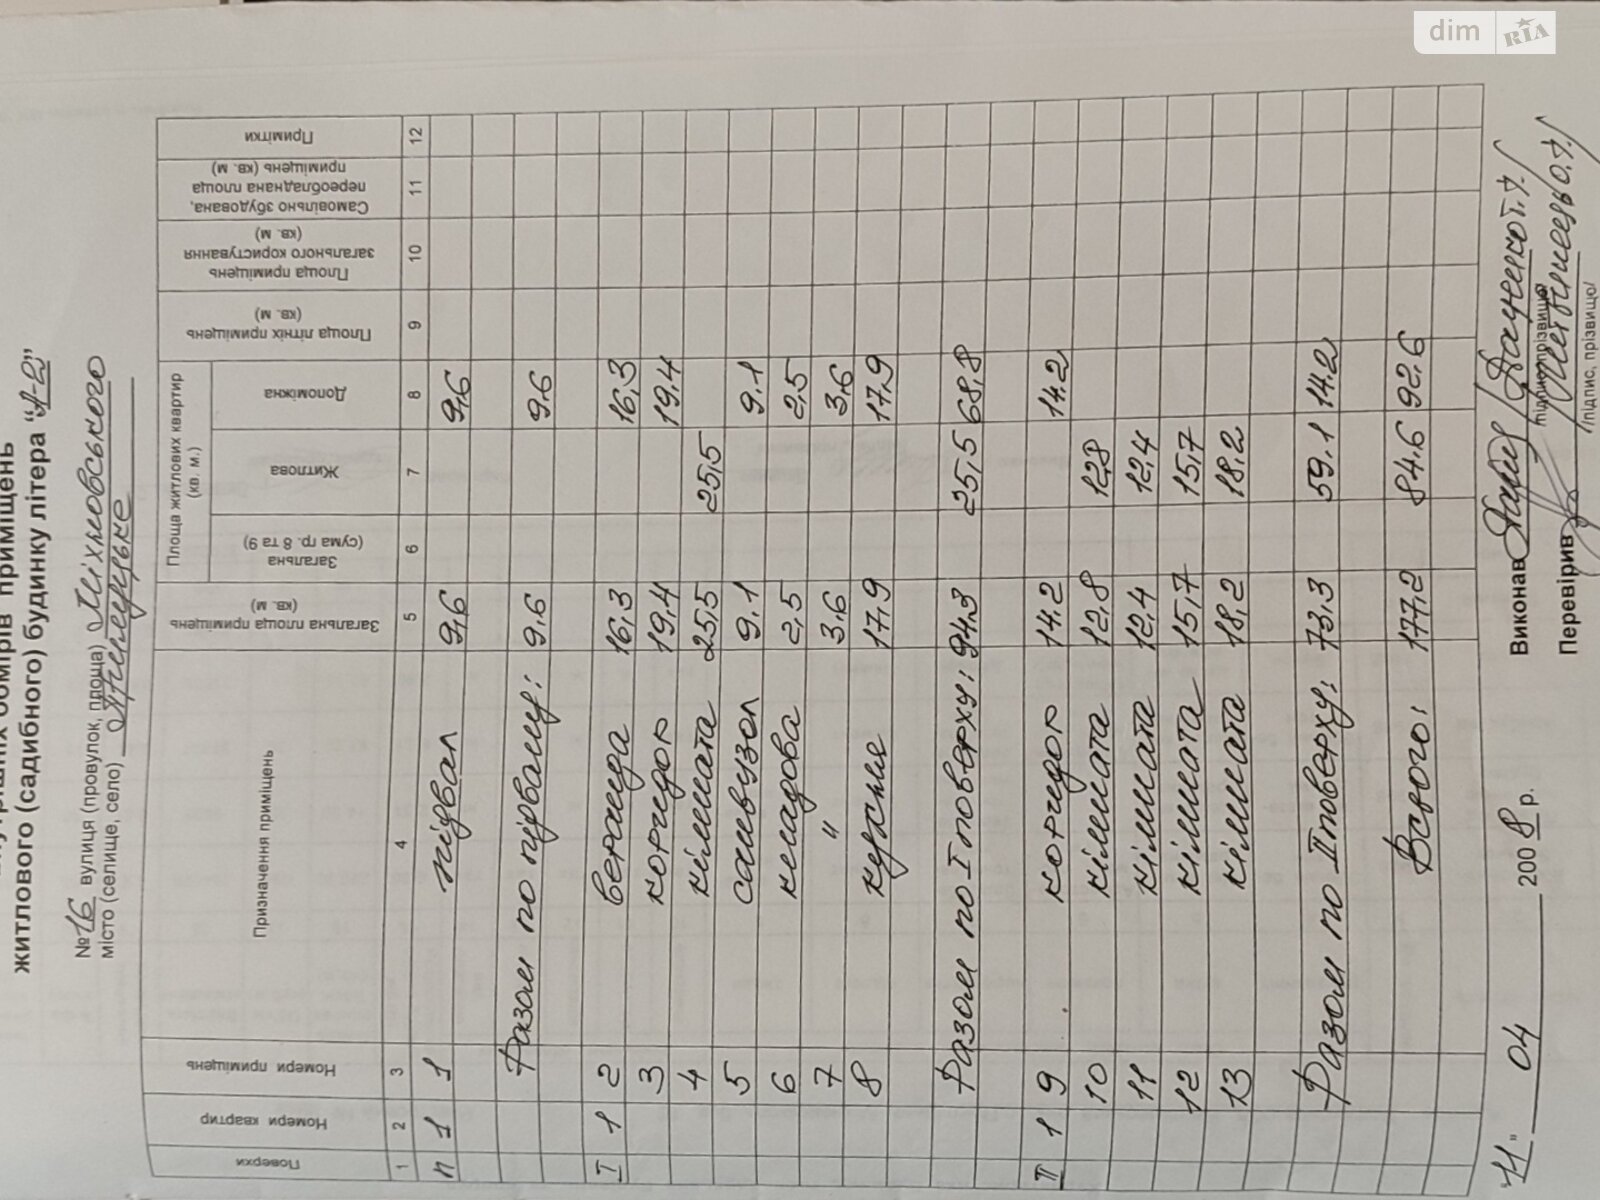 внутрішніх обмірів приміщень
житлового (садибного) будинку літера “А-2”
№ 16 вулиця (провулок, площа) Міхновського
місто (селище, село)
Поверхи
Номери квартир
Номери приміщень
Призначення приміщень
Загальна площа приміщень (кв. м)
Площа житлових квартир (кв. м.)
Загальна (сума гр. 8 та 9)
Житлова
Допоміжна
Площа літніх приміщень (кв. м)
Площа приміщень загального користування (кв. м)
Самовільно збудована, переобладнана площа приміщень (кв. м)
Примітки
1 2 3 4 5 6 7 8 9 10 11 12
п 1 1 підвал 9,6 9,6
Разом по підвалу: 9,6 9,6
I 1 2 веранда 16,3 16,3
3 коридор 19,4 19,4
4 кімната 25,5 25,5
5 санвузол 9,1 9,1
6 кладова 2,5 2,5
7 " 3,6 3,6
8 кухня 17,9 17,9
Разом по I поверху: 94,3 25,5 68,8
II 1 9 коридор 14.2 14.2
10 кімната 12,8 12,8
11 кімната 12,4 12,4
12 кімната 15,7 15,7
13 кімната 18,2 18,2
Разом по II поверху: 73,3 59.1 14.2
Всього: 177,2 84,6 92,6
"11" 04 2008 р.
Виконав
/підпис, прізвище/
Перевірив
/підпис, прізвище/
dim RIA